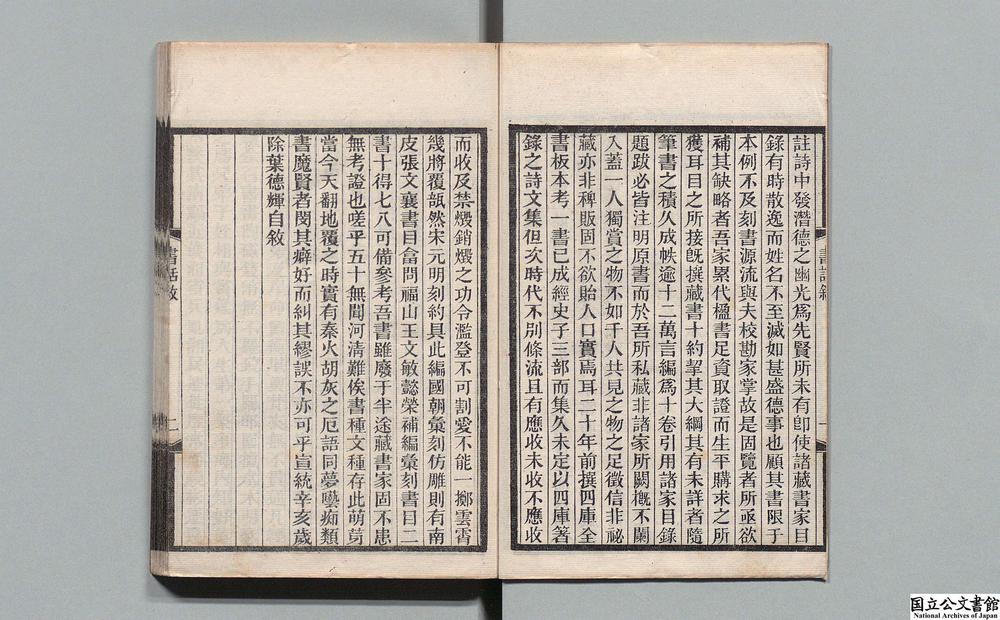 註詩中發潛德之幽光爲先賢所未有卽使諸藏書家目
錄有時散逸而姓名不至滅如甚盛德事也顧其書限于
本例不及刻書源流與夫校勘家掌故是固覽者所亟欲
補其缺略者吾家累代楹書足資取證而生平購求之所
獲耳目之所接旣撰藏書十約挈其大綱其有未詳者隨
筆書之積久成帙逾十二萬言編爲十卷引用諸家目錄
題跋必皆注明原書而於吾所私藏非諸家所闕槪不闌
入蓋一人獨賞之物不如千人共見之物之足徵信非祕
藏亦非稗販固不欲貽人口實焉耳二十年前撰四庫全
書板本考一書已成經史子三部而集久未定以四庫箸
錄之詩文集但次時代不別條流且有應收未收不應收
書話敘
一
而收及禁燬銷燬之功令濫登不可割愛不能一擲雲霄
幾將覆瓿然宋元明刻約具此編國朝彙刻仿雕則有南
皮張文襄書目畣問福山王文敏懿榮補編彙刻書目二
書十得七八可備參考吾書雖廢于半途藏書家固不患
無考證也嗟乎五十無聞河淸難俟書種文種存此萌芽
當今天翻地覆之時實有秦火胡灰之厄語同夢囈痴類
書魔賢者閔其癖好而糾其繆誤不亦可乎宣統辛亥歲
除葉德輝自敘
書話敘
二
国立公文書館
National Archives of Japan